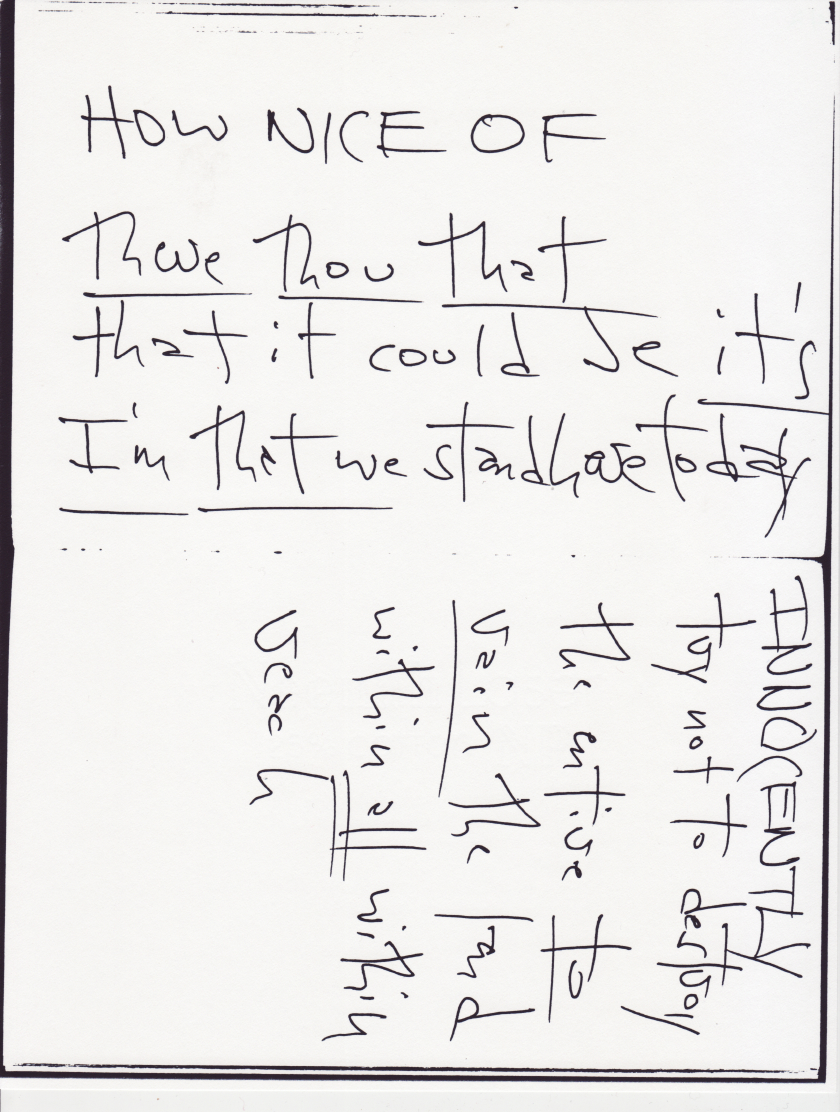 HOW NICE OF
There thou that
that it could be it's
I'm that we stand here today
INNOCENTLY
try not to destroy
the entire to
rain the
within all within
reach